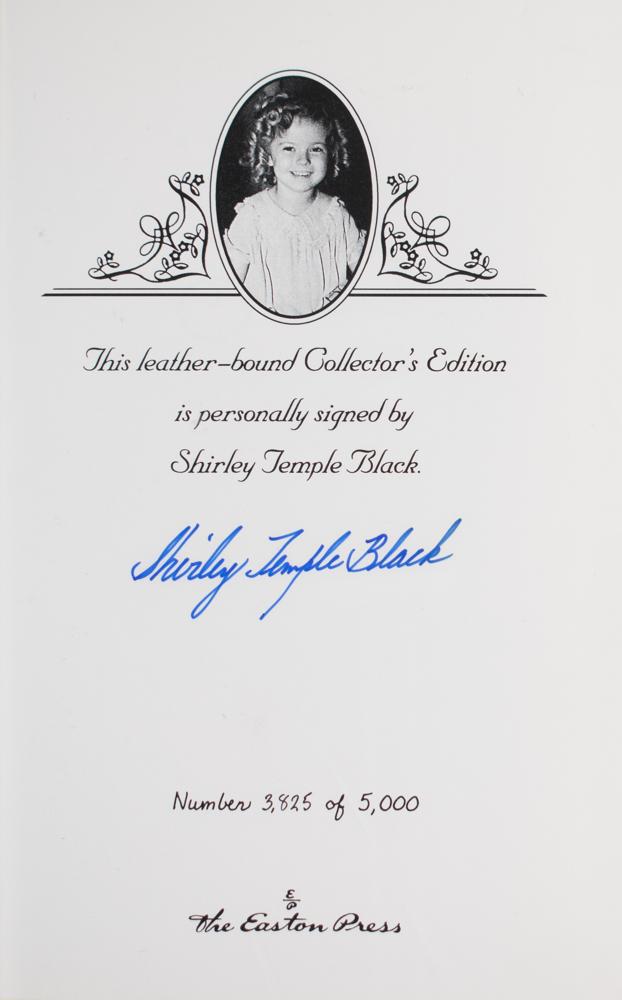 This leather-bound Collector's Edition
is personally signed by
Shirley Temple Black.
Shirley Temple Black
Number 3,825 of 5,000
E
P
The Easton Press